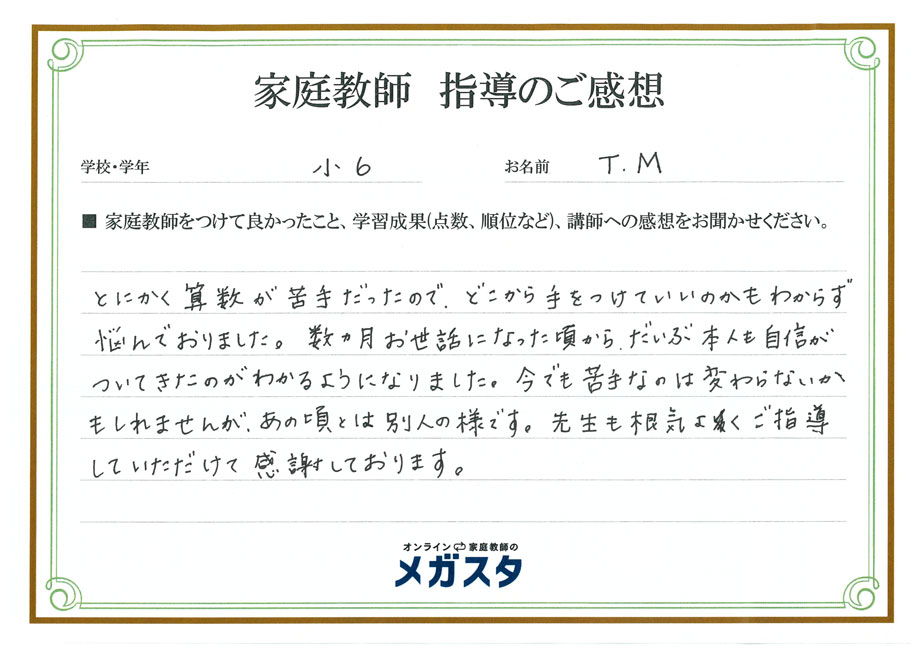 家庭教師 指導のご感想
学校・学年 小6 お名前 T.M
■ 家庭教師をつけて良かったこと、学習成果(点数、順位など)、講師への感想をお聞かせください。
とにかく算数が苦手だったので、どこから手をつけていいのかもわからず
悩んでおりました。数ヵ月お世話になった頃から、だいぶ本人も自信が
ついてきたのがわかるようになりました。今でも苦手なのは変わらないか
もしれませんが、あの頃とは別人の様です。先生も根気よくご指導
していただけて感謝しております。
オンライン家庭教師の
メガスタ